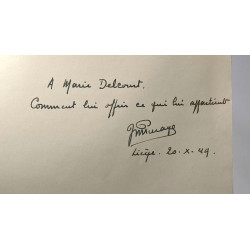 A Marie Delcourt,
Comment lui offrir ce qui lui appartient
Liège, 20-X-49.